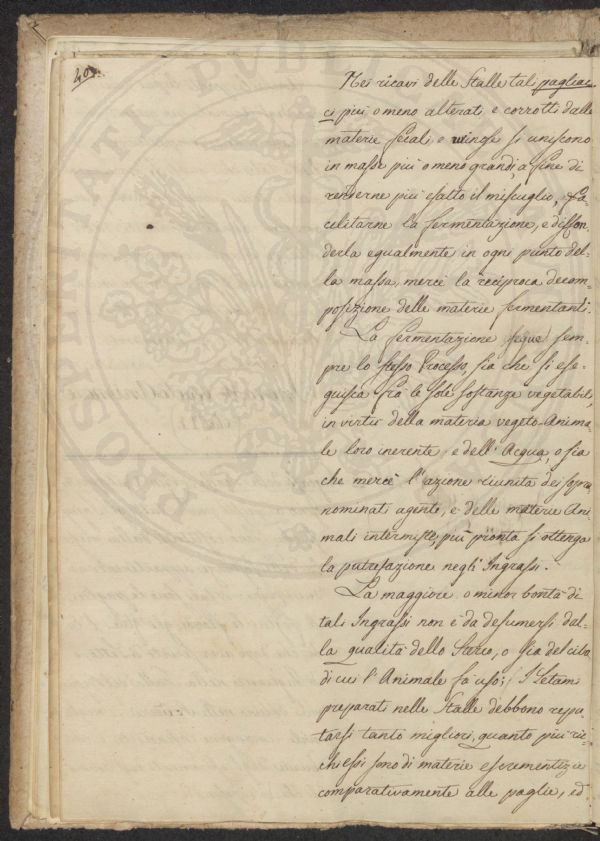 40.
Nei ricavi delle Stalle tali pagliac=
ci più o meno alterati e corrotti dalle
materie fecali o urinose si uniscono
in masse più o meno grandi, a fine di
renderne più esatto il miscuglio, fa=
cilitarne la fermentazione, e diffon=
derla egualmente in ogni punto del=
la massa, mercè la reciproca decom=
posizione delle materie fermentanti.
La fermentazione segue sem=
pre lo stesso Processo, sia che si ese=
guisca frà le sole sostanze vegetabili,
in virtù della materia vegeto-Anima=
le loro inerente, e dell' Acqua, o sia
che mercè l'azione riunita dei sopra
nominati agenti, e delle materie Ani=
mali intermiste, più pronta si ottenga
la putrefazione negli Ingrassi.
La maggiore o minor bontà di
tali Ingrassi non è da desumersi dal=
la qualità dello Sterco, o sia del cibo
di cui l'Animale fà uso; I Letami
preparati nelle Stalle debbono repu=
tarsi tanto migliori, quanto più ric=
chi essi sono di materie escrementizie
comparativamente alle paglie, ed
PROSPERITATI PUBLICAE